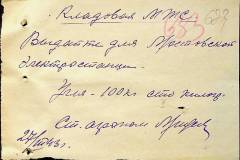 Кладовая МТС
Выдать для Мостовской
электростанции
Угля - 100 кг сто килогр.
Ст. агроном